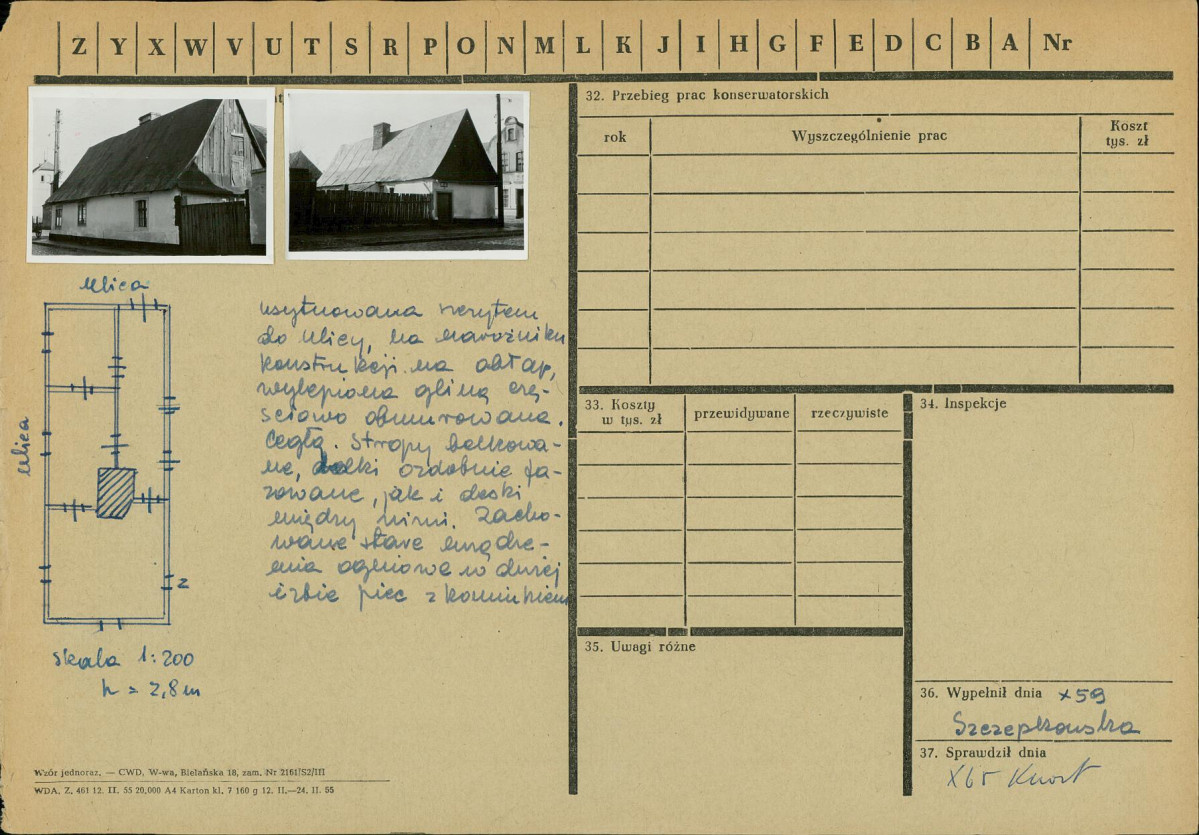 Z Y X W V U T S R P O N M L K J I H G F E D C B A Nr
ulica
ulica
2
skala 1:200
h = 2,8 m
usytuowana szczytem
do ulicy, na narożniku
konstrukcji na obłap,
wylepiona gliną czę-
ściowo obmurowana.
cegłą. Stropy belkowa-
ne, belki ozdobnie fa-
zowane, jak i deski
między nimi. Zacho-
wane stare urządze-
nia ogniowe w dużej
izbie piec z kominkiem
Wzór jednoraz. — CWD, W-wa, Bielańska 18, zam. Nr 2161/S2/III
WDA. Z. 461 12. II. 55 20,000 A4 Karton kl. 7 160 g 12. II.—24. II. 55
32. Przebieg prac konserwatorskich
rok
Wyszczególnienie prac
Koszt
tys. zł
33. Koszty
w tys. zł
przewidywane
rzeczywiste
34. Inspekcje
35. Uwagi różne
36. Wypełnił dnia X 59
Szczepkowska
37. Sprawdził dnia